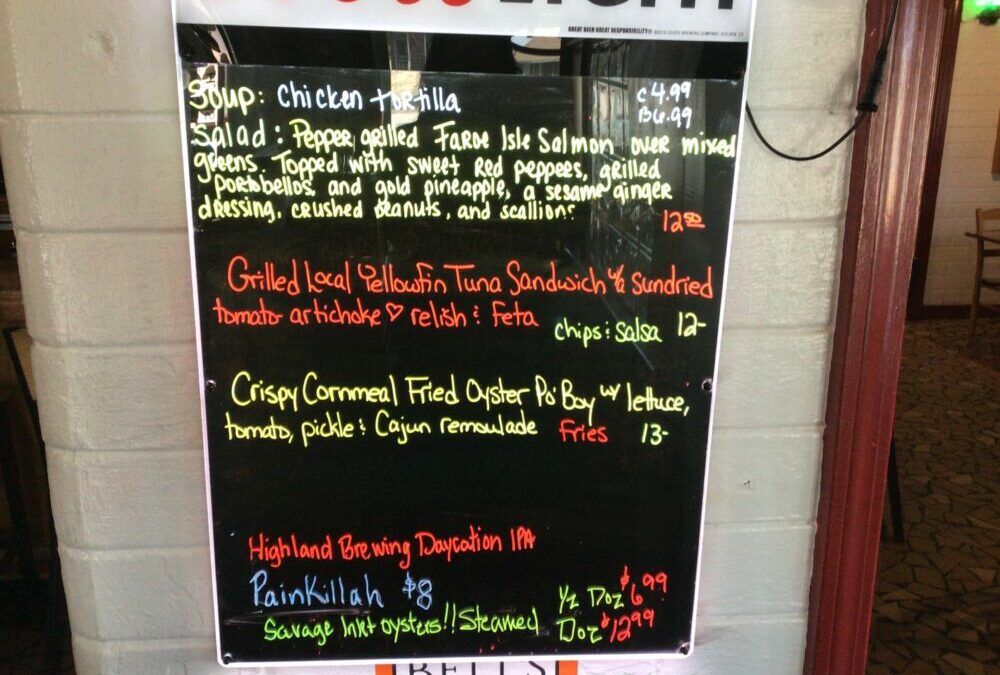 LIGHT
GREAT BEER GREAT RESPONSIBILITY®
Soup: Chicken tortilla C 4.99
B 6.99
Salad: Pepper grilled Faroe Isle Salmon over mixed
greens. Topped with sweet Red peppers, grilled
portobellos, and gold pineapple, a sesame ginger
dressing, crushed peanuts, and scallions 12 50
Grilled Local Yellowfin Tuna Sandwich w/ a sundried
tomato artichoke ♡ relish & feta
chips & salsa 12-
Crispy Cornmeal Fried Oyster Po' Boy w/ lettuce,
tomato, pickle & Cajun remoulade Fries 13-
Highland Brewing Daycation IPA
PainKillah $8 1/2 Doz $6 99
Savage Inlet oysters!! Steamed Doz $12 99
BELL'S